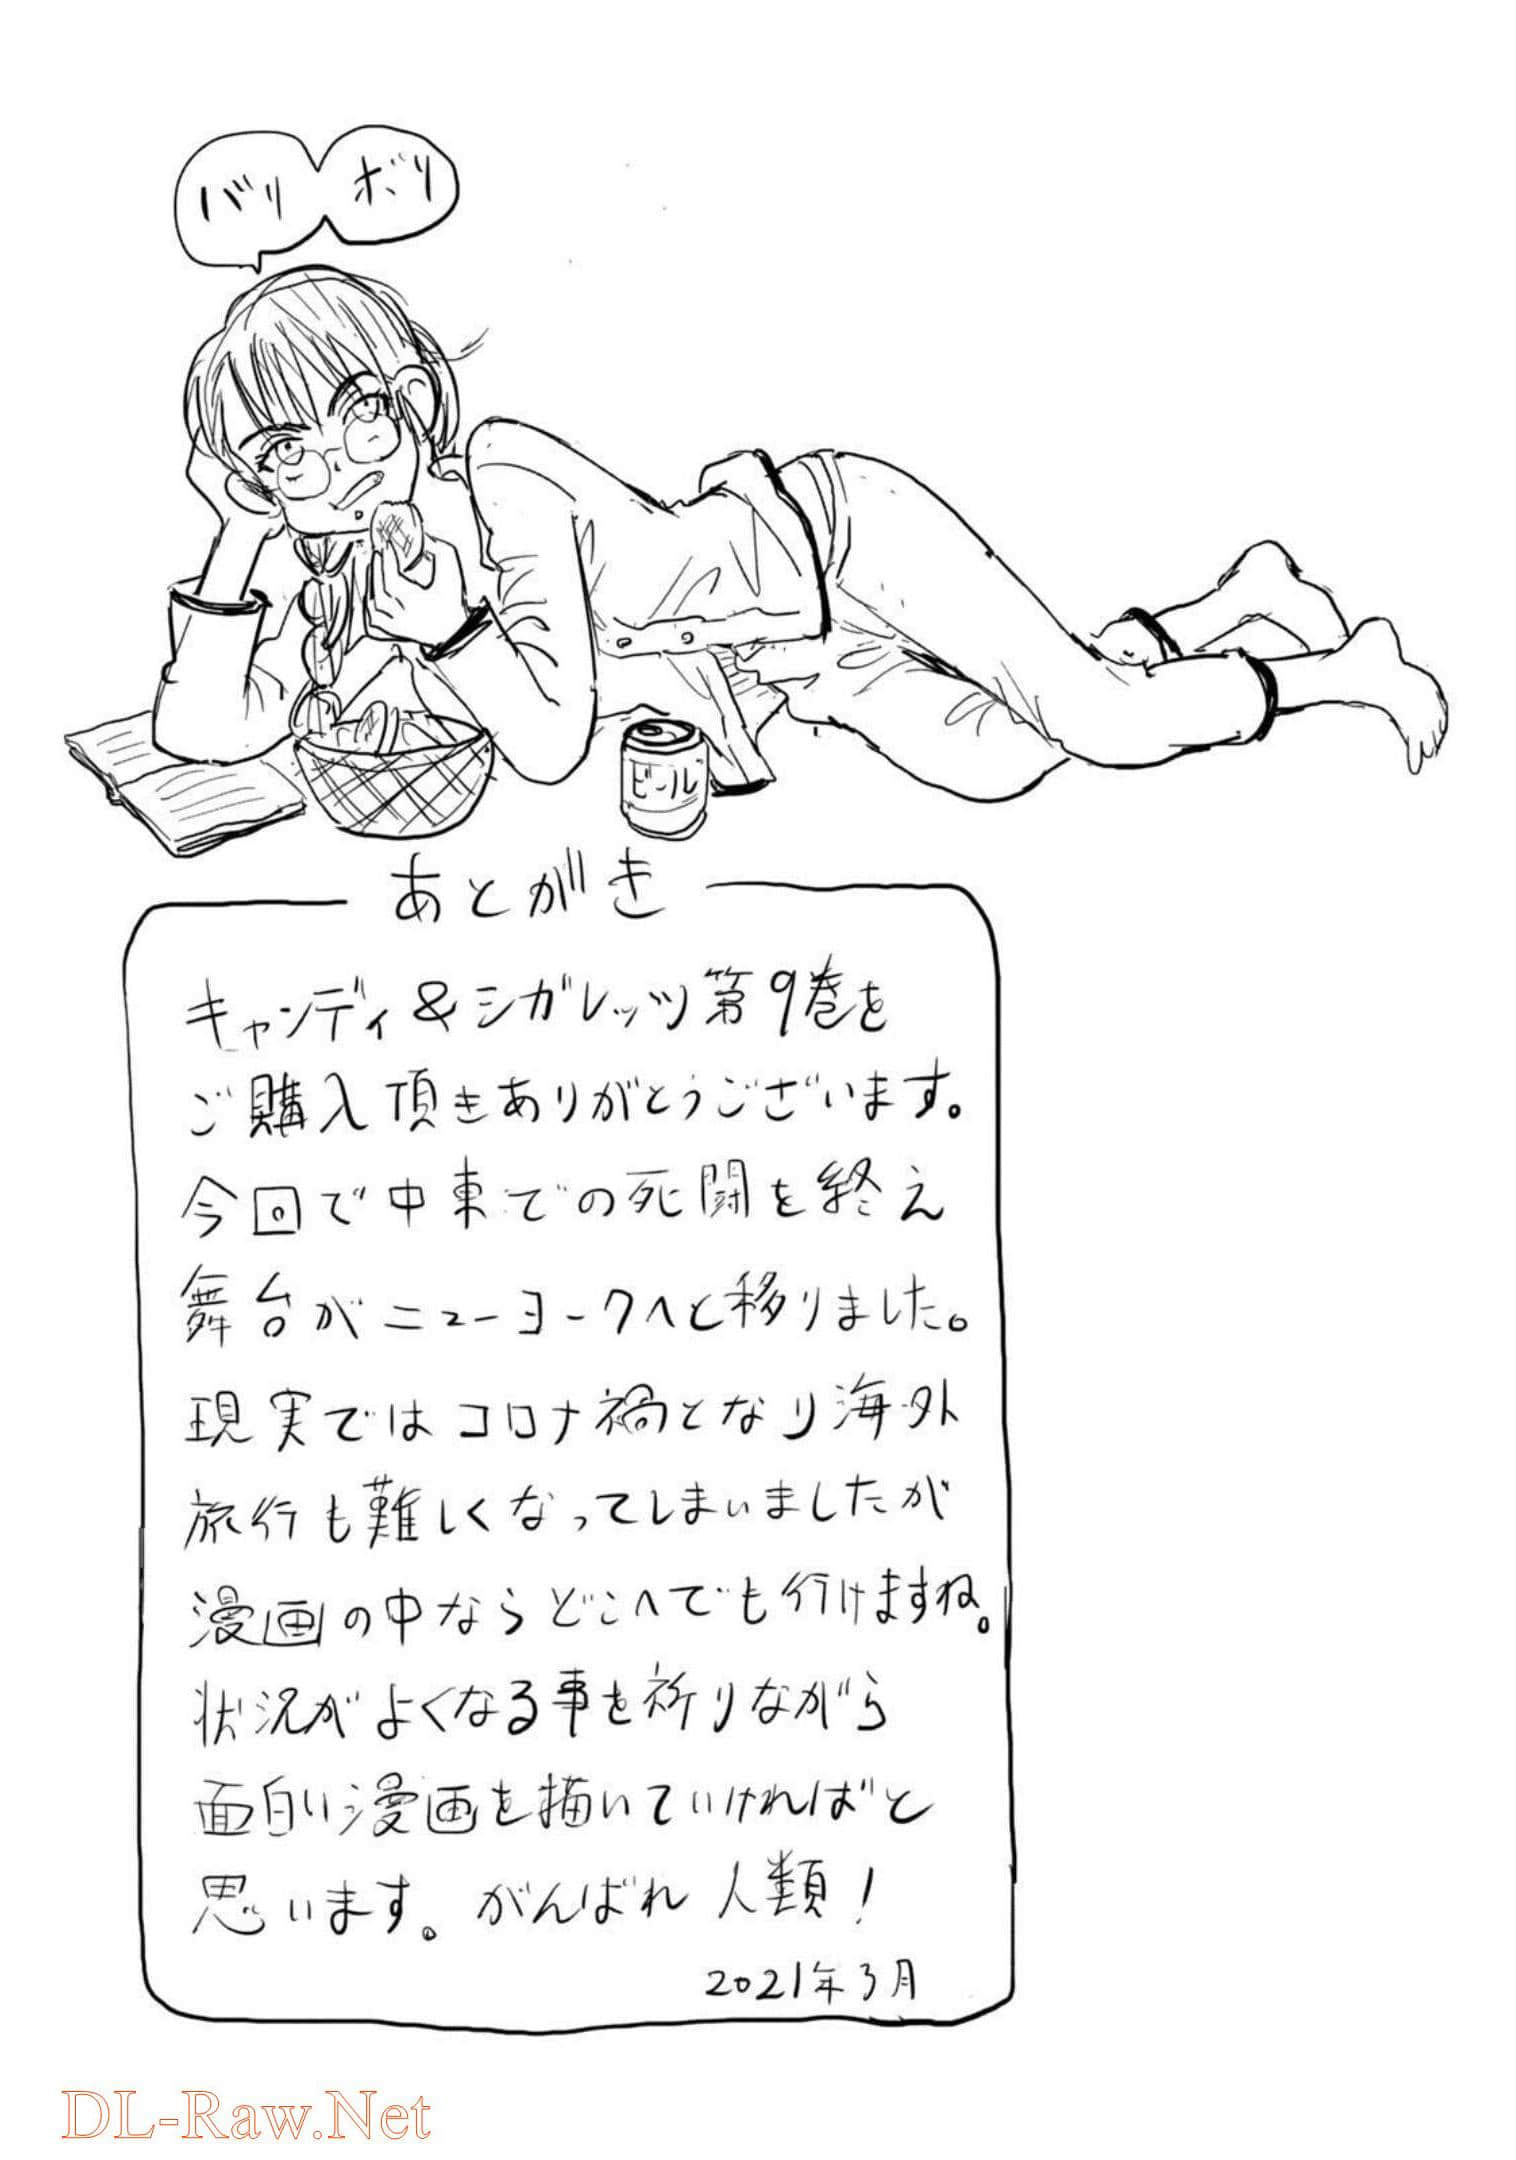 バリ
ボリ
ビール
あとがき
キャンディ&シガレッツ第9巻を
ご購入頂きありがとうございます。
今回で中東での死闘を終え
舞台がニューヨークへと移りました。
現実ではコロナ禍となり海外
旅行も難しくなってしまいましたが
漫画の中ならどこへでも行けますね。
状況がよくなる事を祈りながら
面白い漫画を描いていければと
思います。がんばれ人類!
2021年3月
DL-Raw.Net